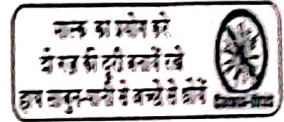 मास्क का प्रयोग करें
दो गज की दूरी बनाये रखें
हाथ साबुन-पानी से अच्छे से धोयें